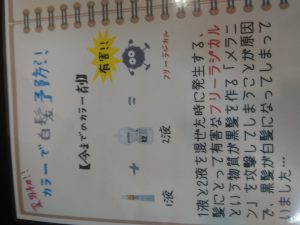 カラーで白髪予防!!
【今までのカラー剤】
有害!!
1液 + 2液 = フリーラジカル
1液と2液を混ぜた時に発生する、
髪にとって有害なフリーラジカル
という物質が黒髪を作る「メラニ
ン」を攻撃してしまうことが原因
で、黒髪が白髪になってしまって
いました…